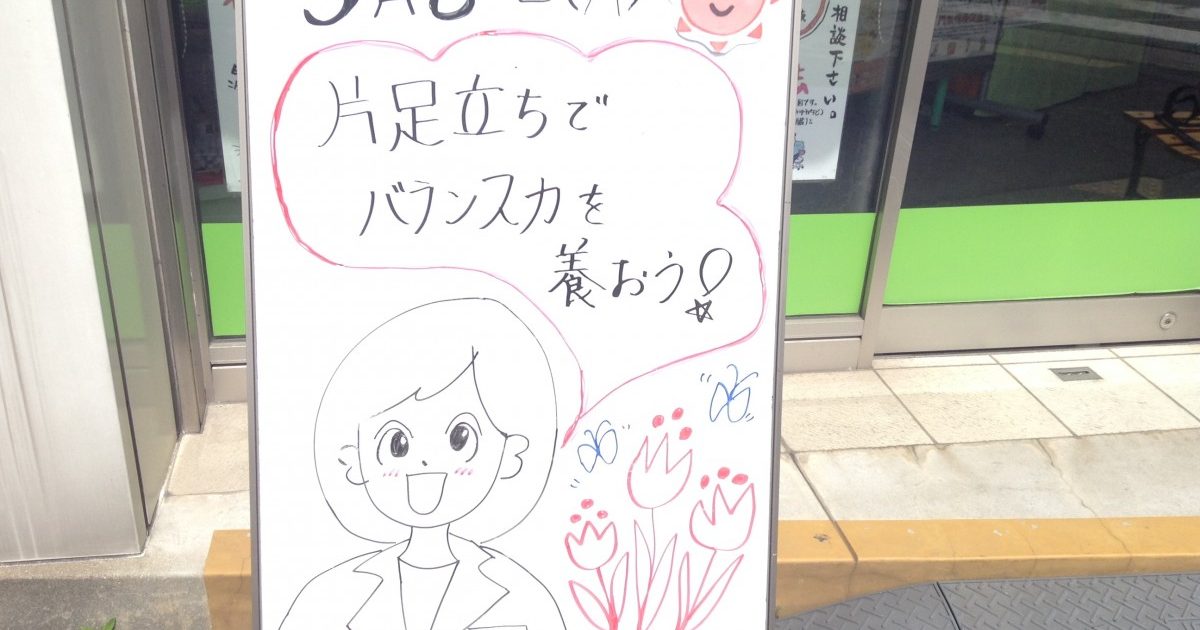 片足立ちで
バランス力を
養おう!
相談下さい。